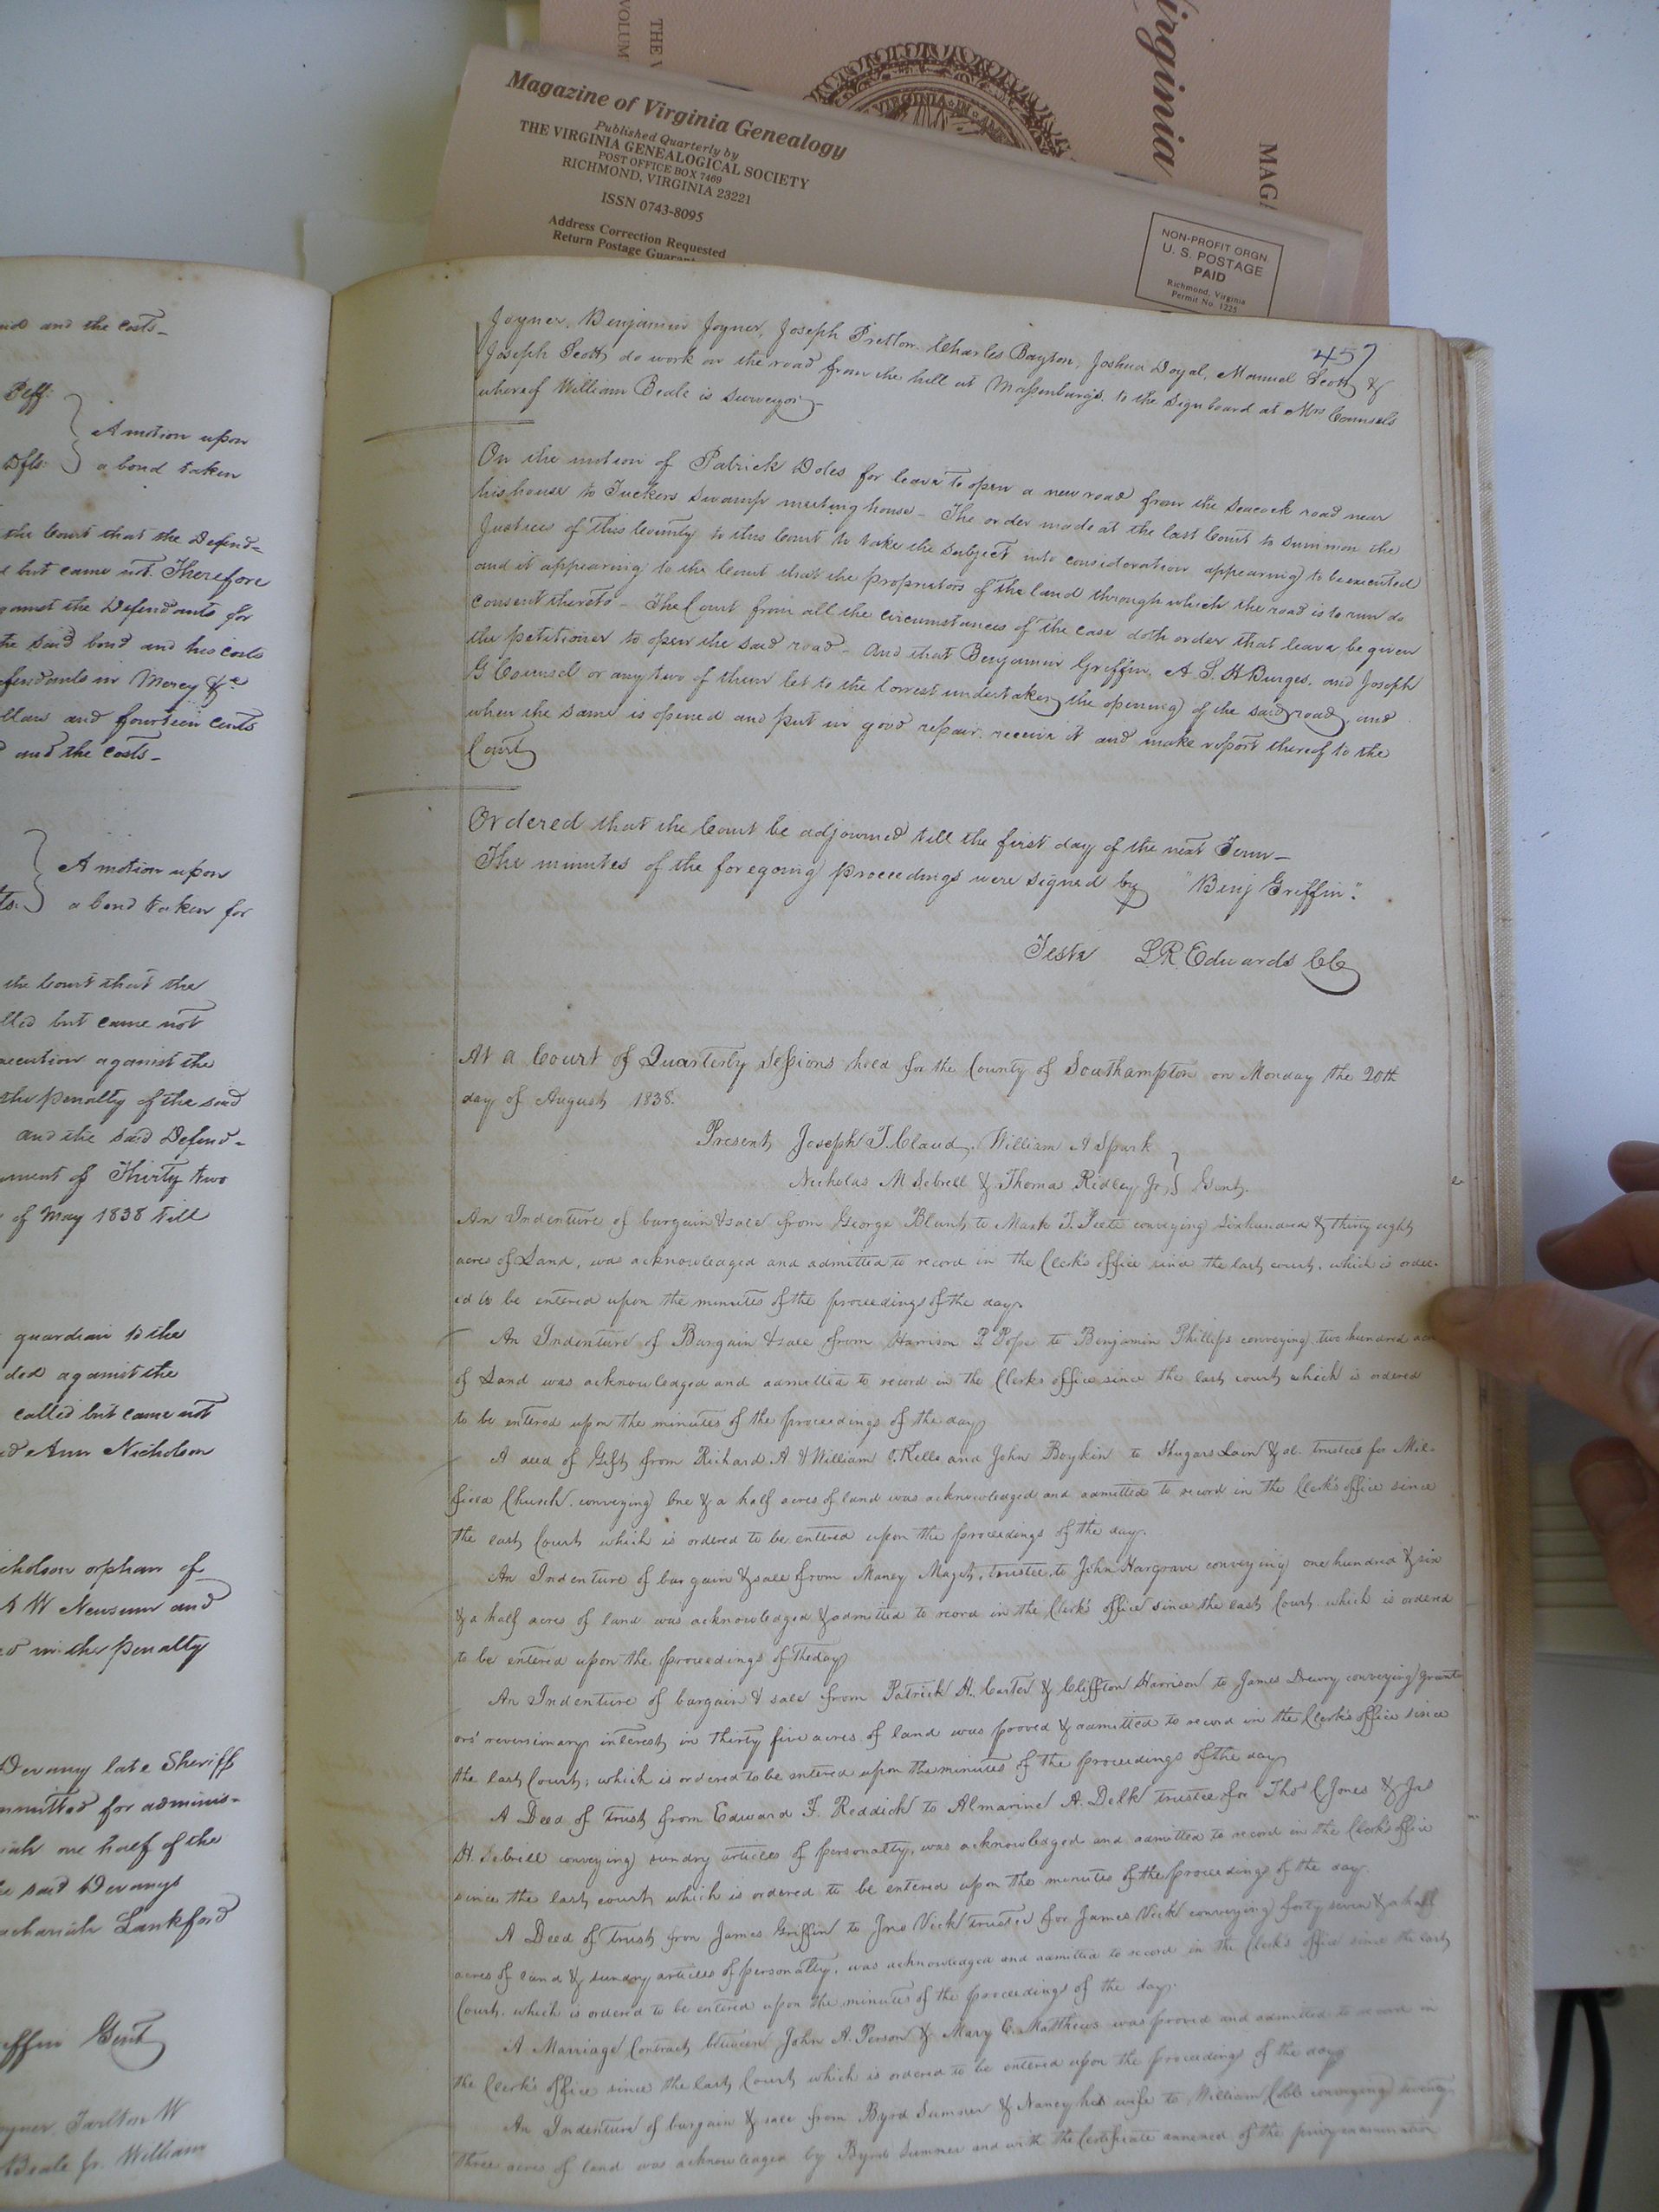 irginia
MAG
THE V
VOLUM
VIRGINIA IN
Magazine of Virginia Genealogy
Published Quarterly by
THE VIRGINIA GENEALOGICAL SOCIETY
POST OFFICE BOX 7469
RICHMOND, VIRGINIA 23221
ISSN 0743-8095
Address Correction Requested
Return Postage Guaran
NON-PROFIT ORGN.
U. S. POSTAGE
PAID
Richmond, Virginia
Permit No. 1225
and the costs
Deff:
Dfts: } A motion upon
a bond taken
the Court that the Defend=
but came not. Therefore
against the Defendants for
the said bond and his costs
efendants in Mercy &c
llars and fourteen cents
and the costs
A motion upon
a bond taken for
the Court that the
lled but came not
xecution against the
the penalty of the said
and the said Defend=
ment of Thirty two
of May 1838 till
guardian to the
ded against the
called but came not
Ann Nicholson
icholson orphan of
W Newsum and
in the penalty
Devany late Sheriff
mmitted for adminis=
one half of the
said Devanys
achariah Lankford
iffin Gent
oyner Tarlton W
Beale Jr. William
457
Joyner, Benjamin Joyner, Joseph Pretlow, Charles Bayton, Joshua Doyal, Manuel Scott &
Joseph Scott, do work on the road from the hill at Massenburg's to the sign board at Mrs Counsels
whereof William Beale is surveyor
On the motion of Patrick Doles for leave to open a new road from the Seacock road near
his house to Tuckers swamp meeting house - The order made at the last Court to summon the
Justices of this County to this Court to take the subject into consideration appearing to be executed
and it appearing to the Court that the proprietors of the land through which the road is to run do
consent thereto - The Court from all the circumstances of the case doth order that leave be given
the petitioner to open the said road - And that Benjamin Griffin, A. S. H Burges, and Joseph
G Counsel or any two of them let to the lowest undertaker the opening of the said road, and
when the same is opened and put in good repair, receive it and make report thereof to the
Court
Ordered that the Court be adjourned till the first day of the next Term -
The minutes of the foregoing proceedings were signed by "Benj Griffin".
Teste L R Edwards CC
At a Court of Quarterly Sessions held for the County of Southampton on Monday the 20th
day of August 1838.
Present, Joseph T. Claud, William A Spark
Nicholas M Sebrell & Thomas Ridley Jr } Gent.
An Indenture of bargain & sale from George Blunt, to Mark T. Peete conveying six hundred & thirty eight
acres of Land, was acknowledged and admitted to record in the Clerk's office since the last court, which is order-
ed to be entered upon the minutes of the proceedings of the day.
An Indenture of Bargain & sale from Harrison P. Pope to Benjamin Phillips conveying two hundred acr
of Land was acknowledged and admitted to record in the Clerks office since the last court which is ordered
to be entered upon the minutes of the proceedings of the day
A deed of Gift from Richard A & William C. Kello and John Boykin to Lain & al. trustees for Mil-
field Church, conveying One & a half acres of land was acknowledged and admitted to record in the Clerk's office since
the last Court which is ordered to be entered upon the proceedings of the day.
An Indenture of bargain & sale from Maney Maget, trustee, to John Hargrave conveying one hundred & six
& a half acres of land was acknowledged & admitted to record in the Clerk's office since the last Court which is ordered
to be entered upon the proceedings of the day
An Indenture of bargain & sale from Patrick H. Carter & Cliffton Harrison to James Drewry conveying grant-
ors' reversionary interest in thirty five acres of land was proved & admitted to record in the Clerk's office since
the last Court; which is ordered to be entered upon the minutes of the proceedings of the day
A Deed of trust from Edward F. Reddick to Almarine A. Delk trustee for Thos C Jones & Jas
H. Sebrell conveying sundry articles of personalty, was acknowledged and admitted to record in the Clerk's office
since the last court, which is ordered to be entered upon the minutes of the proceedings of the day.
A Deed of trust from James Griffin to Jno Vick trustee for James Vick conveying forty seven & a half
acres of land & sundry articles of personalty, was acknowledged and admitted to record in the Clerk's office since the last
Court, which is ordered to be entered upon the minutes of the proceedings of the day.
A Marriage Contract between John A. Person & Mary E. Matthews was proved and admitted to record in
the Clerk's office since the last Court which is ordered to be entered upon the proceedings of the day
An Indenture of bargain & sale from Byrd Sumner & Nancy his wife to William Cobb conveying twenty
three acres of land was acknowledged by Byrd Sumner and with the Certificate annexed of the privy examination